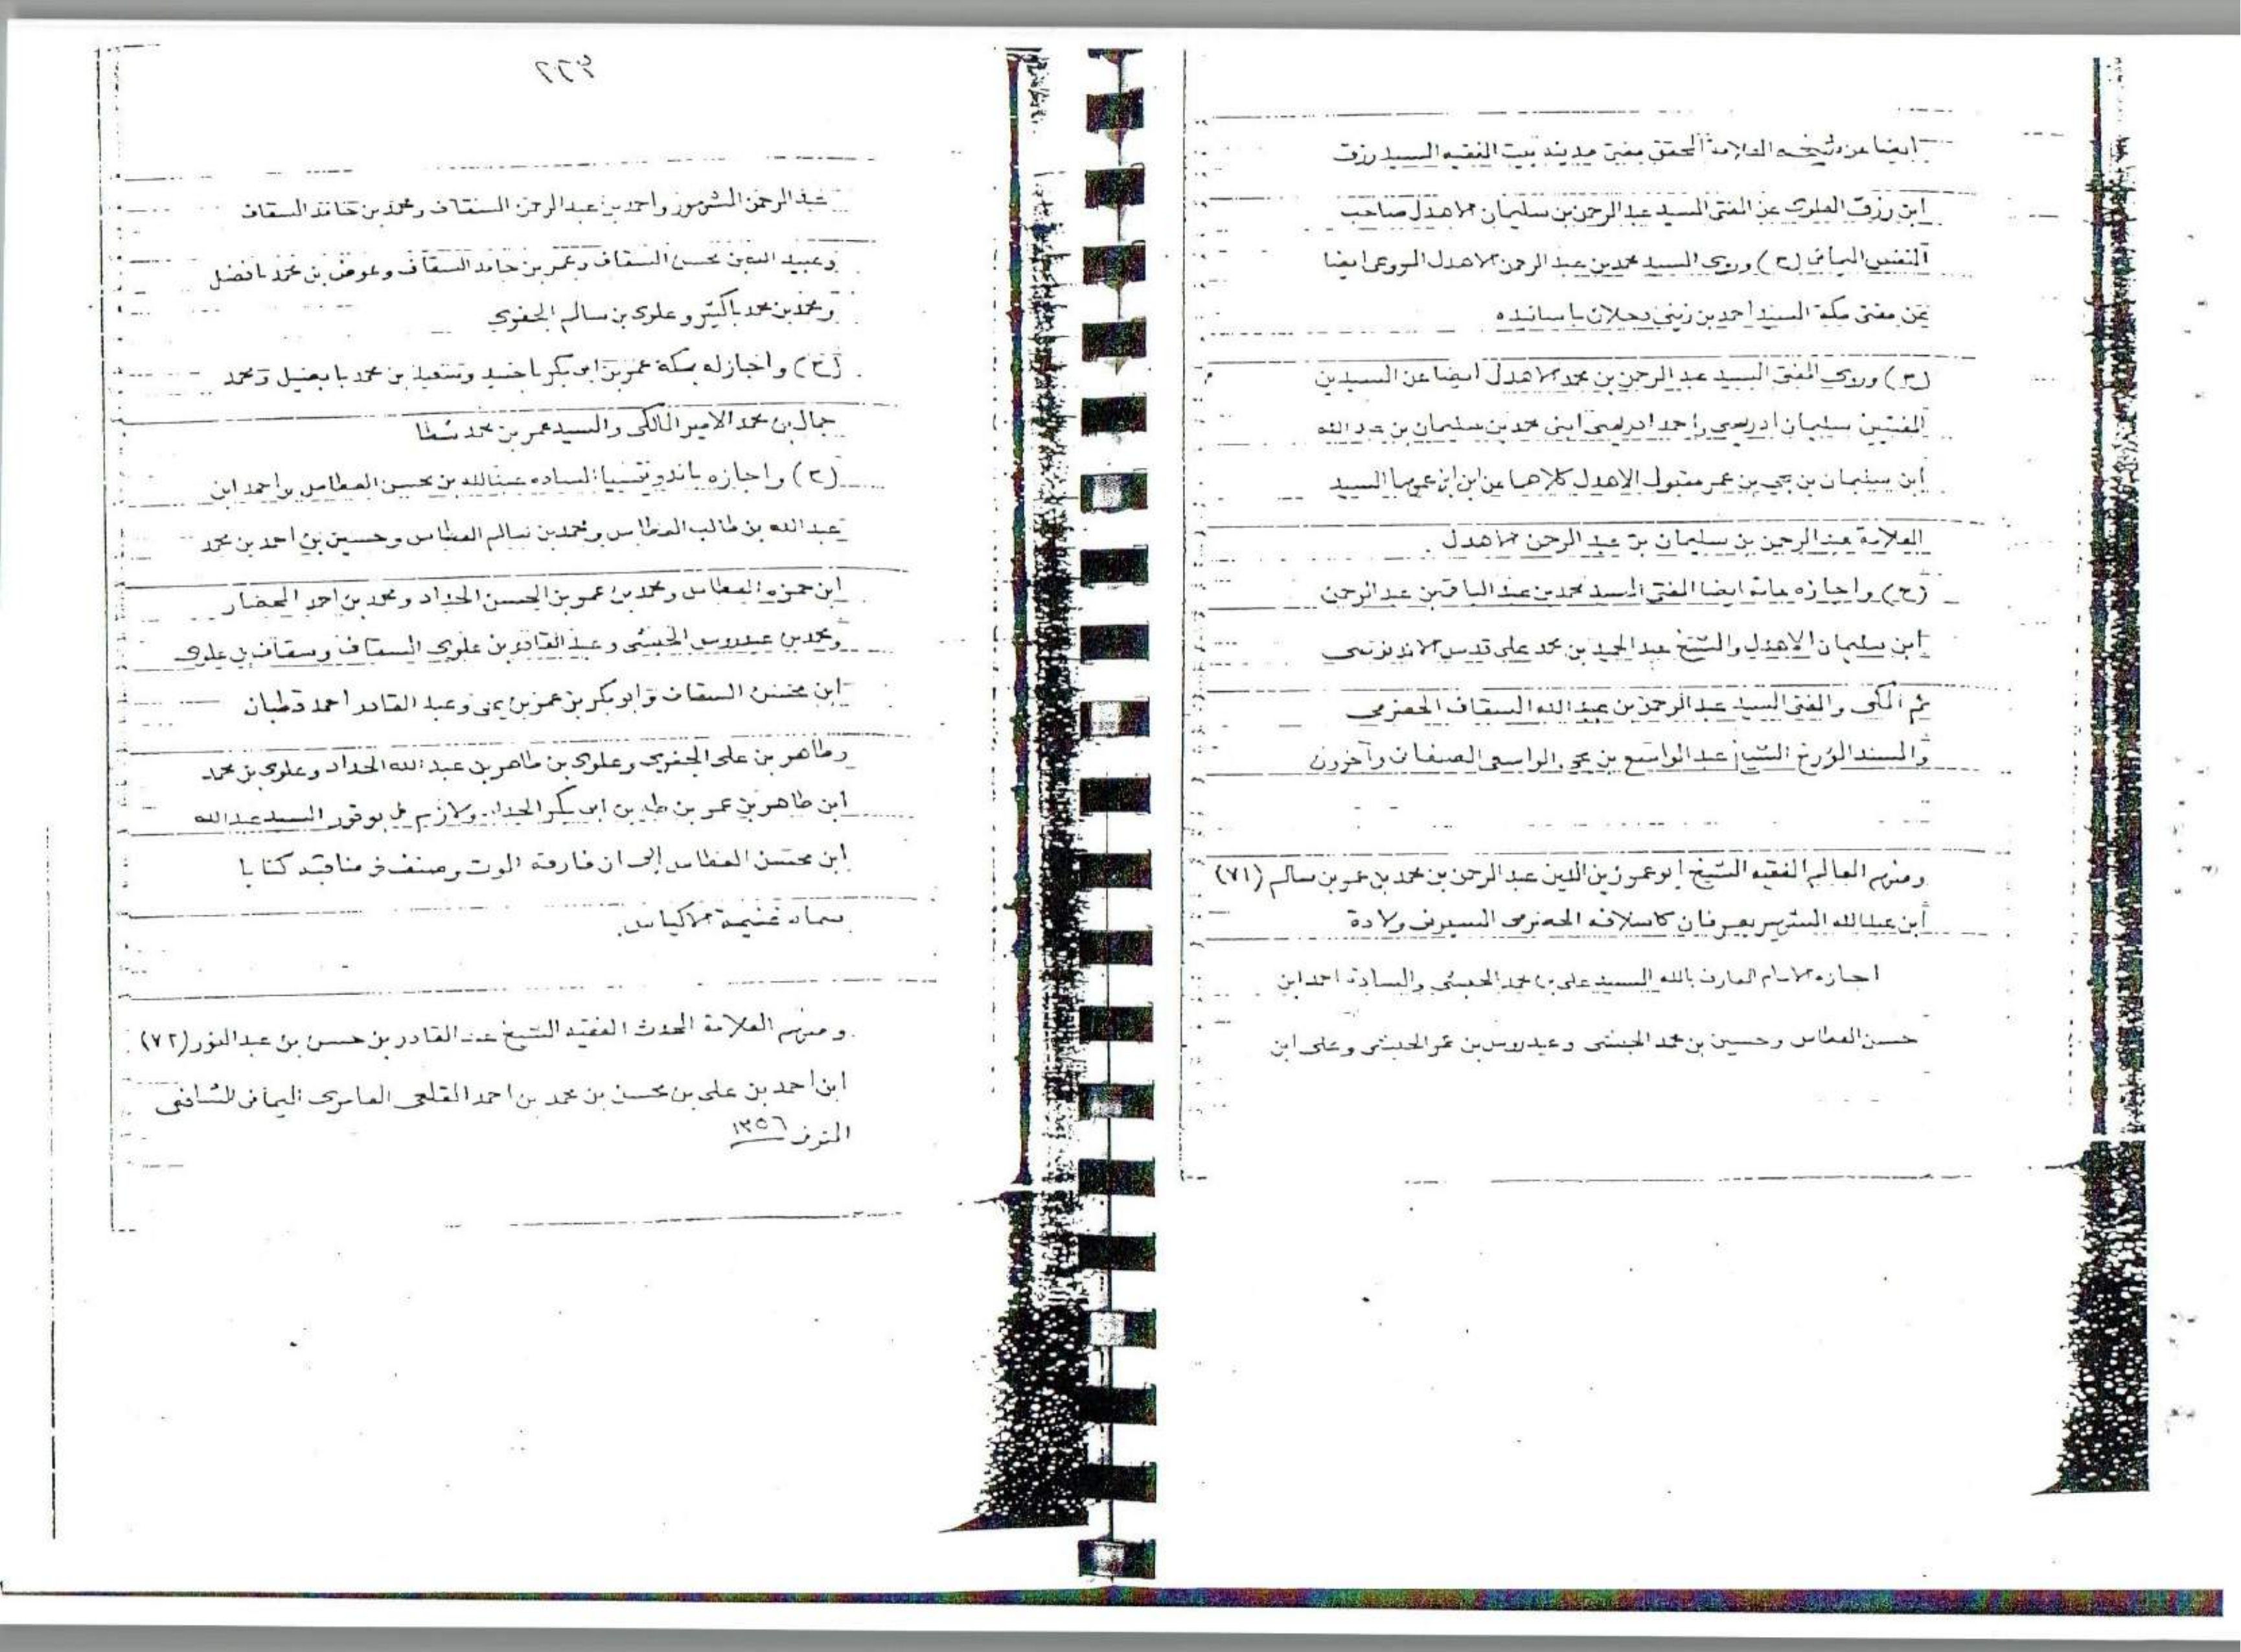 ايضا عن شيخه العلامة المحقق مفتي مدينة بيت الفقيه السيد رزق
ابن رزق العلوي عن المفتي السيد عبد الرحمن بن سليمان الاهدل صاحب
النفس اليماني (ح) وروى السيد محمد بن عبد الرحمن الاهدل المروعي ايضا
عن مفتي مكة السيد احمد بن زيني دحلان باسانيده
(ح) وروى المفتي السيد عبد الرحمن بن محمد الاهدل ايضا عن السيدين
المفتيين سليمان ادريسي واحمد ادريسي ابني محمد بن سليمان بن عبد الله
ابن سليمان بن يحي بن عمر مقبول الاهدل كلاهما عن ابن عمهما السيد
العلامة عبد الرحمن بن سليمان بن عبد الرحمن الاهدل
(ح) واجازه عامة ايضا المفتي السيد محمد بن عبد الباقي بن عبد الرحمن
ابن سليمان الاهدل والشيخ عبد الحميد بن محمد علي قدس الاندونيسي
ثم المكي والمفتي السيد عبد الرحمن بن عبيد الله السقاف الحضرمي
والمسند المؤرخ الشيخ عبد الواسع بن يحي الواسعي الصنعاني وآخرون
ومنهم العالم الفقيه الشيخ ابو عمر زين الدين عبد الرحمن بن محمد بن عمر بن سالم (٧١)
ابن عبد الله الشهير بعرفان كاسلافه الحضرمي السيوني ولادة
اجازه الامام العارف بالله السيد علي بن محمد الحبشي والسادة احمد ابن
حسن العطاس وحسين بن محمد الحبشي وعيدروس بن عمر الحبشي وعلي ابن
٢٢٩
عبد الرحمن المشهور واحمد بن عبد الرحمن السقاف ومحمد بن حامد السقاف
وعبيد الله بن محسن السقاف وعمر بن حامد السقاف وعوض بن محمد بافضل
ومحمد بن محمد باكثير وعلوي بن سالم الجفري
(ح) واجازله بمكة عمر بن ابي بكر باجنيد وسعيد بن محمد بابصيل ومحمد
جمال بن محمد الامير المالكي والسيد عمر بن محمد شطا
(ح) واجازه باندونيسيا السادة عبد الله بن محسن العطاس واحمد ابن
عبد الله بن طالب العطاس ومحمد بن سالم العطاس وحسين بن احمد بن محمد
ابن حمزه العطاس ومحمد بن عمر بن الحسن الحداد ومحمد بن احمد المحضار
ومحمد بن عيدروس الحبشي وعبد القادر بن علوي السقاف وسقاف بن علوي
ابن محسن السقاف وابو بكر بن عمر بن يحي وعبد القادر احمد قطبان
وطاهر بن علي الجفري وعلوي بن طاهر بن عبد الله الحداد وعلوي بن محمد
ابن طاهر بن عمر بن طه بن ابي بكر الحداد ولازم بوقور السيد عبد الله
ابن محسن العطاس إلى ان فارقه الموت وصنف في مناقبه كتابا
سماه غنيمة الاكياس.
ومنهم العلامة المحدث الفقيه الشيخ عبد القادر بن حسن بن عبد النور (٧٢)
ابن احمد بن علي بن محسن بن محمد بن احمد القلعي العامري اليماني الشافعي
المتوفى ١٣٥٦